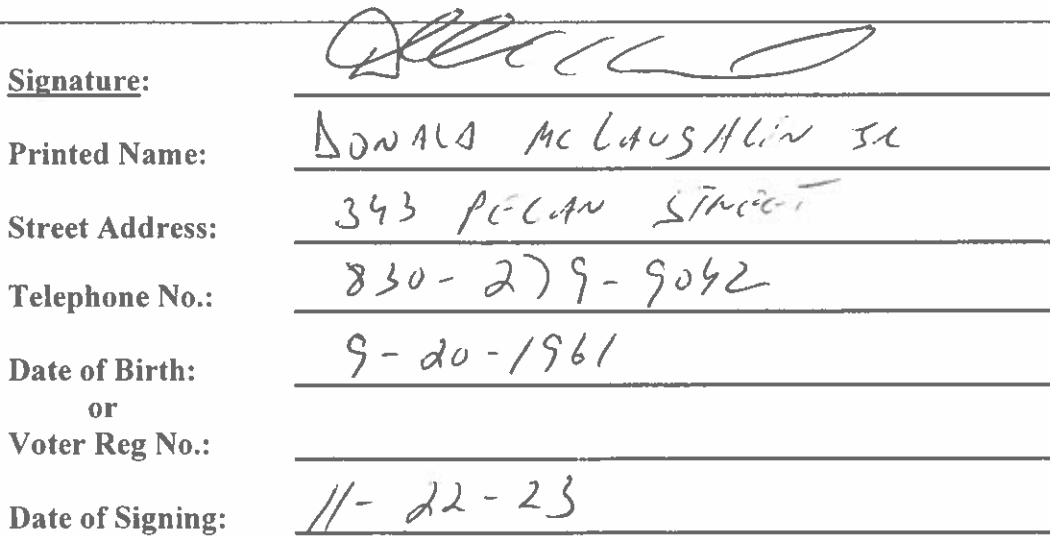 Signature:
Printed Name: DONALD MCLAUGHLIN JR
Street Address: 343 PECAN STREET
Telephone No.: 830-279-9042
Date of Birth: 9-20-1961
or
Voter Reg No.:
Date of Signing: 11-22-23